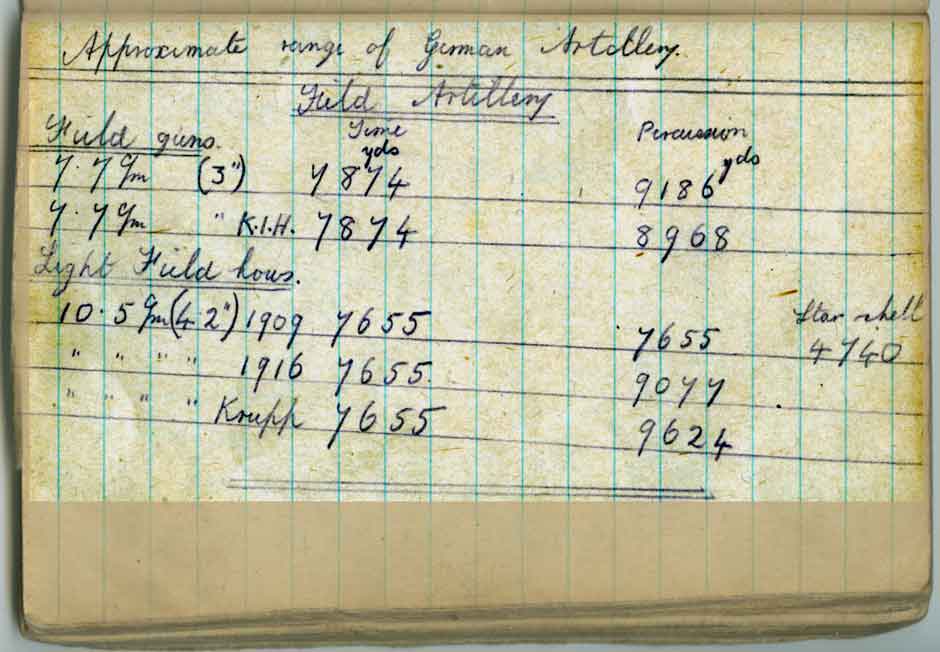 Approximate range of German Artillery.
Field Artillery
Field guns. Time Percussion
yds yds
7.7 cm (3") 7874 9186
7.7 cm " K.I.H. 7874 8968
Light Field hows.
10.5 cm (4.2") 1909 7655 7655 Star shell 4740
" " " " 1916 7655 9077
" " " " Krupp 7655 9624